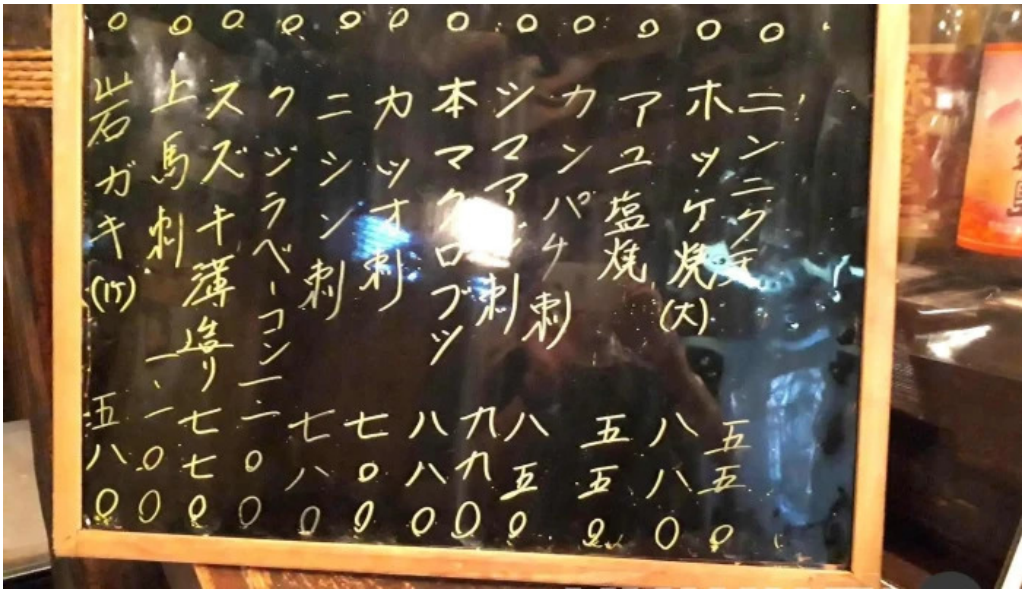 ○ニンニク天 五五0
○ホッケ焼(大) 八八0
○アユ塩焼 五五0
○カンパチ刺 八五0
○シマアジ刺 九九0
○本マグロブツ 八八0
○カツオ刺 七00
○ニシン刺 七八0
○クジラベーコン 一二00
○スズキ薄造り 七七0
○上馬刺 一、一00
○岩ガキ(1ケ) 五八0